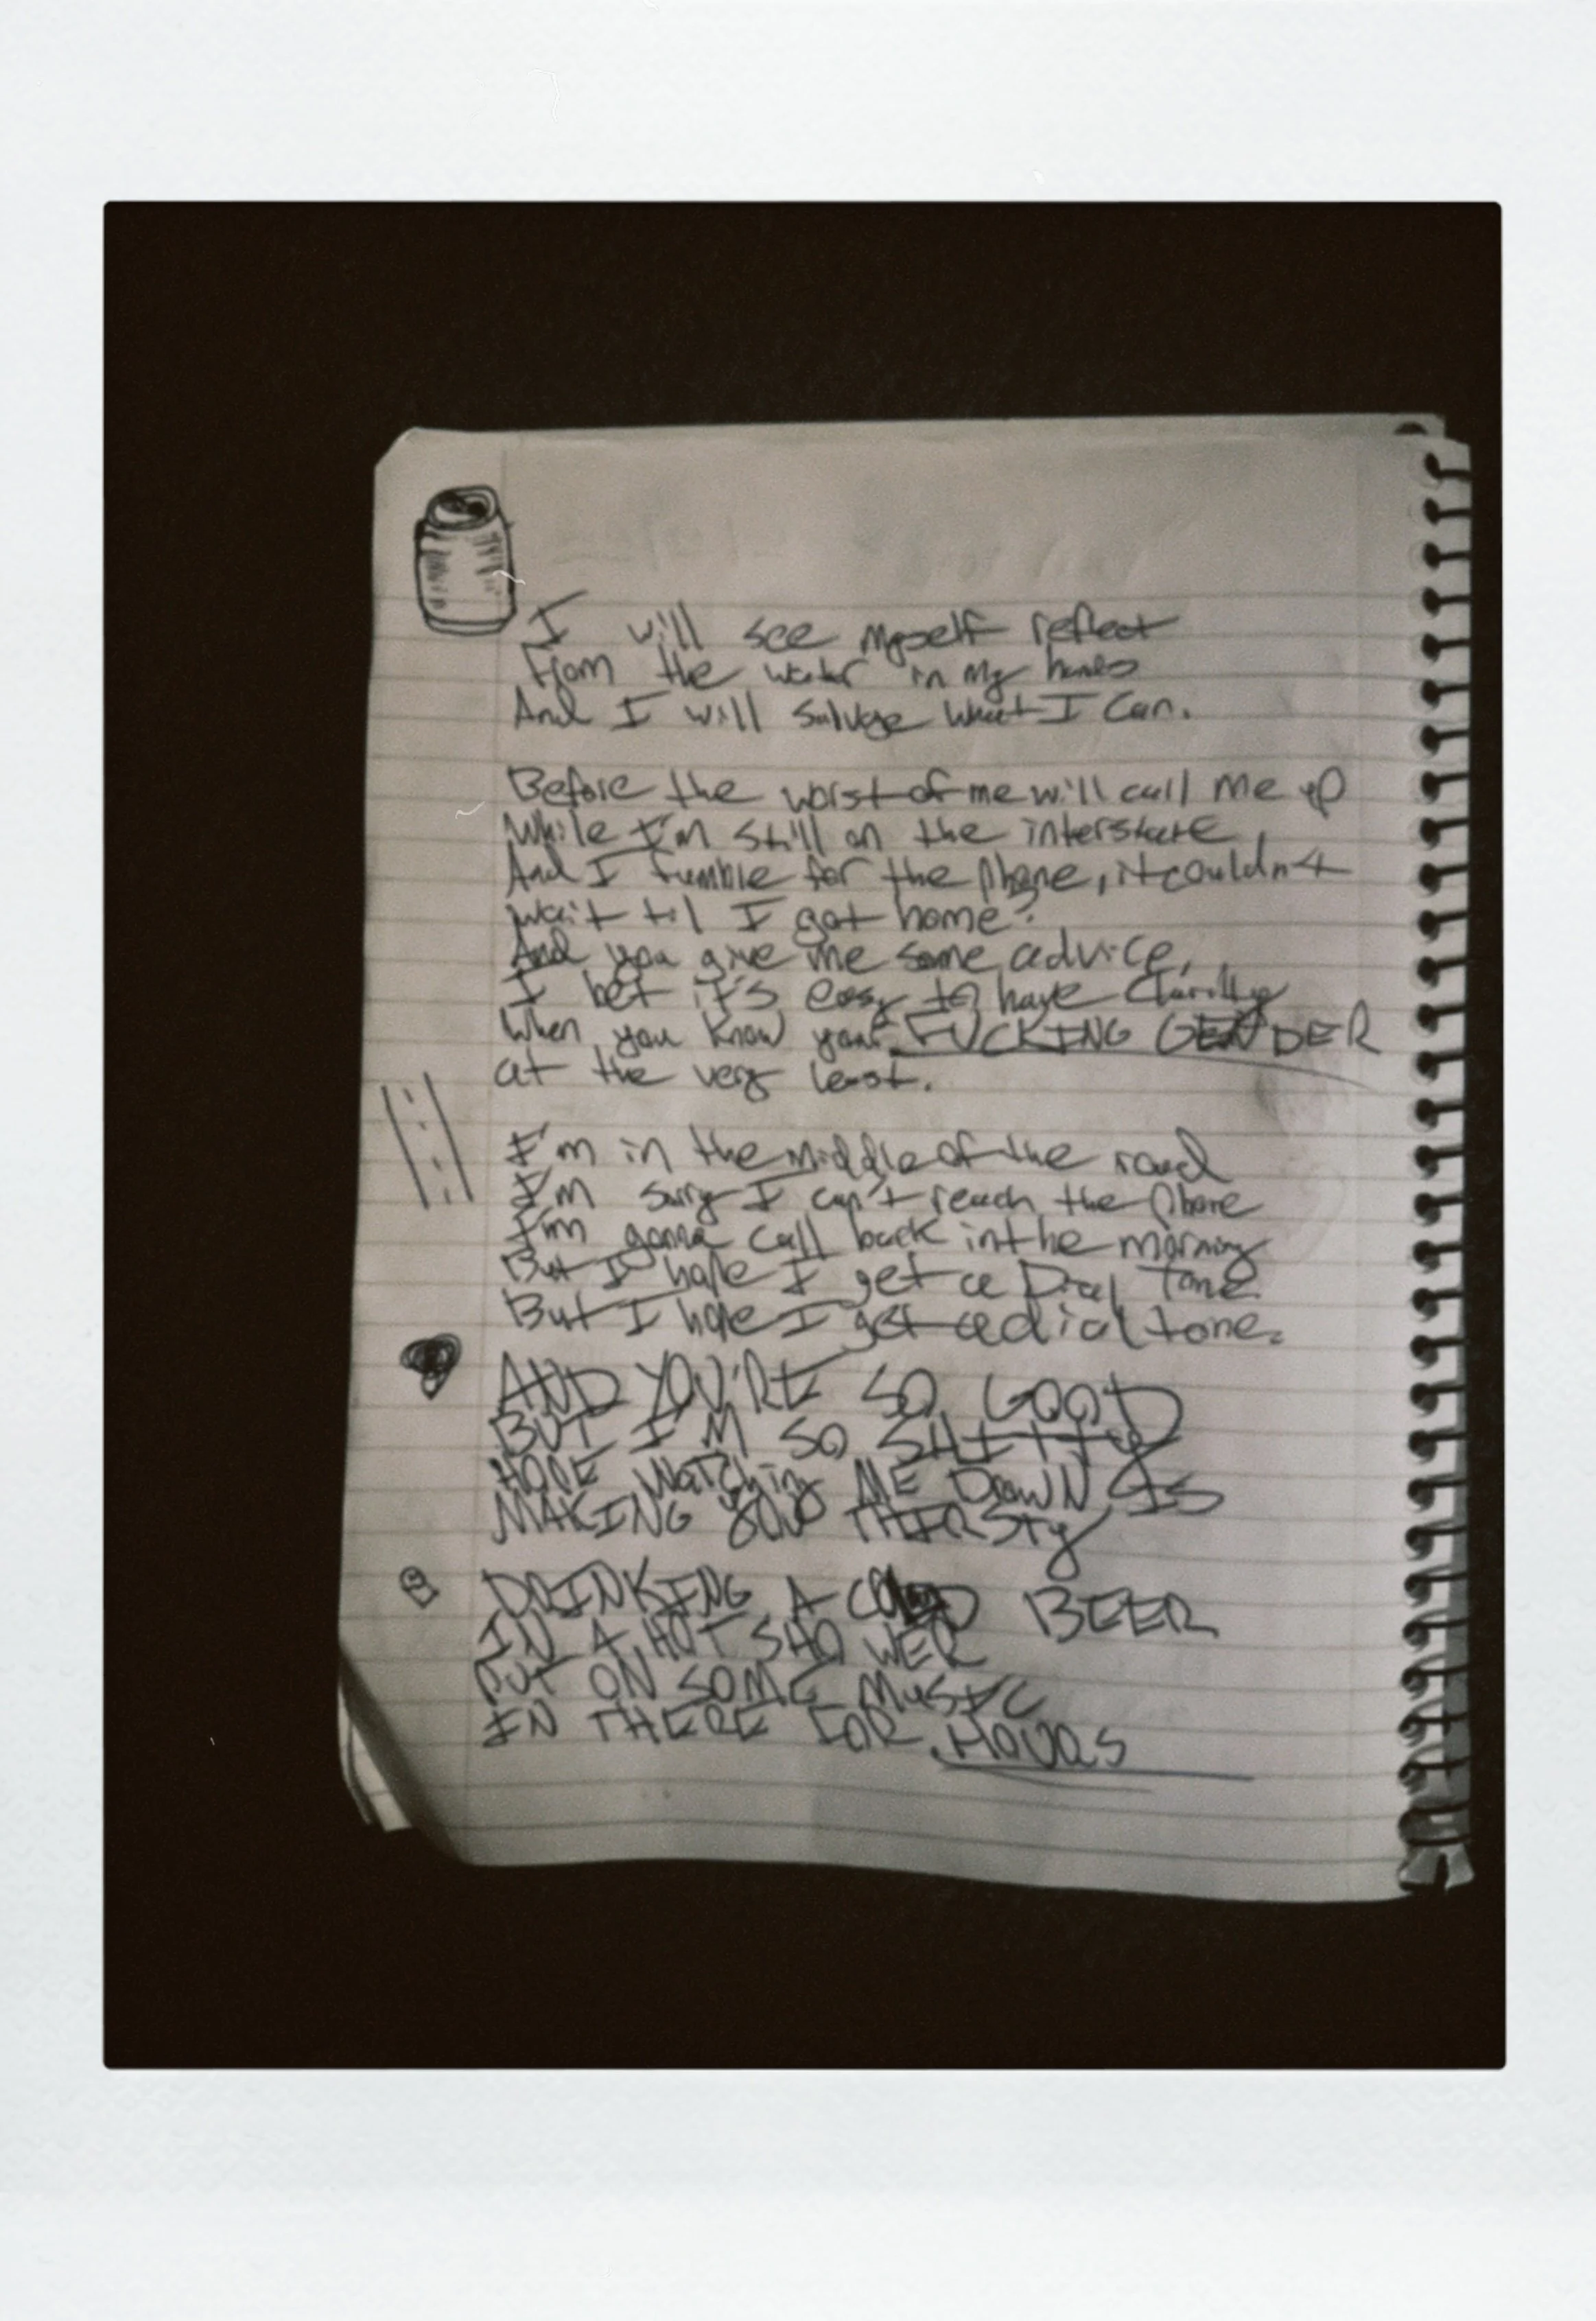 I will see myself reflect
From the water in my hands
And I will salvage what I can.
Before the worst of me will call me up
While I'm still on the interstate,
And I fumble for the phone, it couldn't
wait til I got home?
And you give me some advice,
I bet it's easy to have clarity
When you know your FUCKING GENDER
at the very least.
I'm in the middle of the road
I'm sorry I can't reach the phone
I'm gonna call back in the morning
But I hope I get a Dial Tone
But I hope I get a dial tone.
AND YOU'RE SO GOOD
BUT I'M SO SHITTY
HOPE WATChing ME DrowN IS
MAKING YOU THIRSTy
DRINKING A COLD BEER
IN A HOT SHOWER
PUT ON SOME MUSIC
IN THERE FOR HOURS